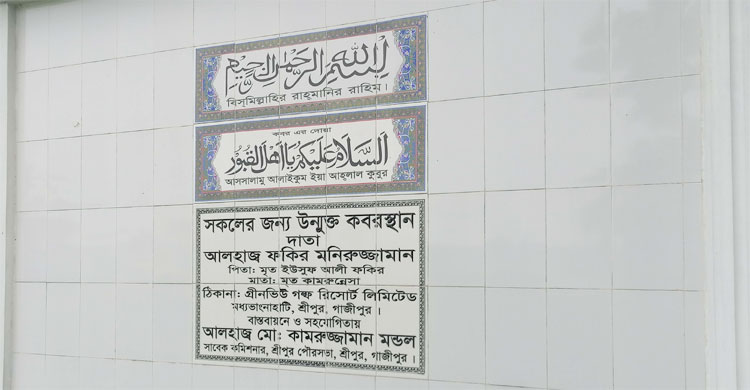 بسم الله الرحمن الرحيم
বিস্‌মিল্লাহির রাহ্‌মানির রাহিম।
কবর এর দোয়া
السلام عليكم يا اهل القبور
আসসালামু আলাইকুম ইয়া আহ্‌লাল কুবুর
সকলের জন্য উন্মুক্ত কবরস্থান
দাতা
আলহাজ্ব ফকির মনিরুজ্জামান
পিতা: মৃত ইউসুফ আলী ফকির
মাতা: মৃত কামরুন্নেসা
ঠিকানা: গ্রীনভিউ গল্ফ রিসোর্ট লিমিটেড
মধ্যভাংনাহাটি, শ্রীপুর, গাজীপুর।
বাস্তবায়নে ও সহযোগিতায়
আলহাজ্ব মো: কামরুজ্জামান মন্ডল
সাবেক কমিশনার, শ্রীপুর পৌরসভা, শ্রীপুর, গাজীপুর।